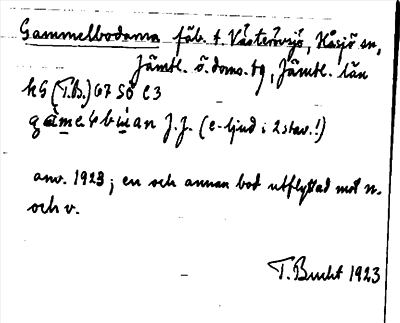 Gammelbodarna fäb. t. Västerövsjö, Håsjö sn,
Jämtl. ö. doms. tg, Jämtl. län
kG (T.B.) 67 Sö e 3
J.J. (e-ljud i 2 stav.!)
anv. 1923; en och annan bod utflyttad mot n.
och v.
T. Bucht 1923